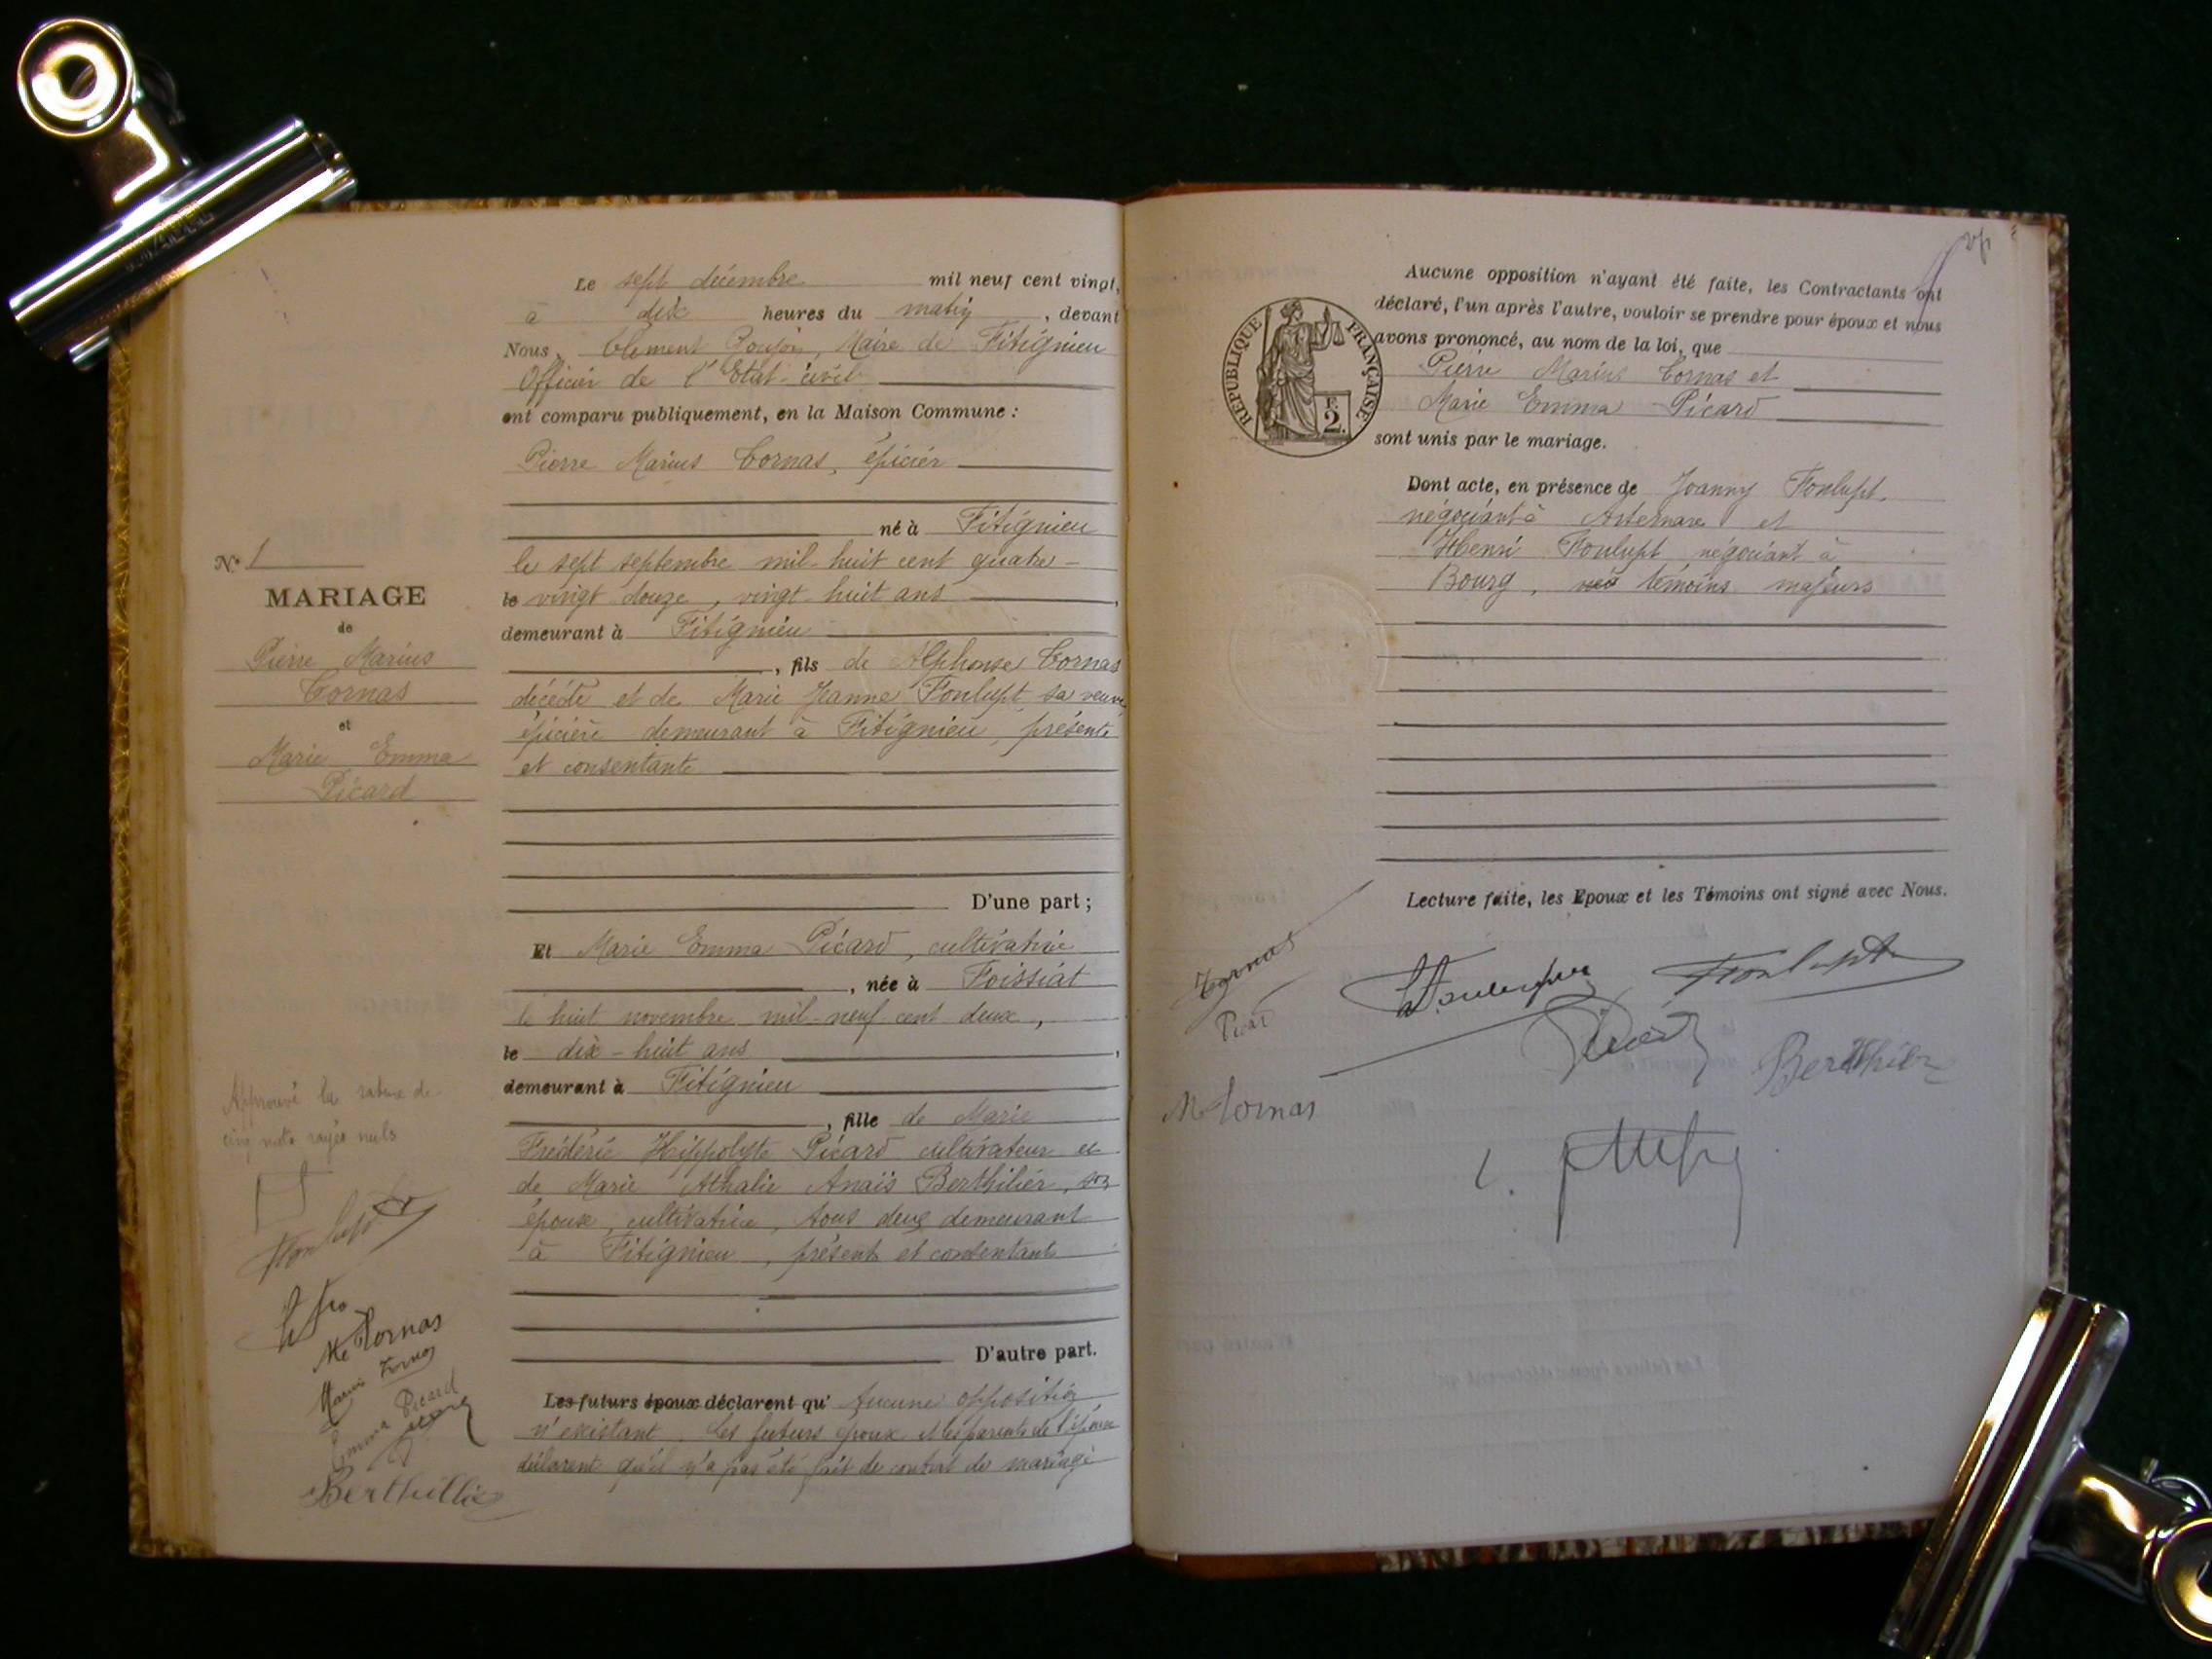 Le sept décembre mil neuf cent vingt,
à dix heures du matin, devant
Nous, Clément, Maire de Fitignieu
Officier de l'Etat-civil
ont comparu publiquement, en la Maison Commune :
Pierre Marius Cornas, épicier
né à Fitignieu
le sept septembre mil-huit cent quatre-
le vingt douze, vingt-huit ans,
demeurant à Fitignieu
, fils de Alphonse Cornas
décédé et de Marie Jeanne Fonlupt sa veuve
épicière demeurant à Fitignieu, présente
et consentante
D'une part ;
Et Marie Emma Picard, cultivatrice
, née à Foissiat
le huit novembre mil-neuf-cent deux,
le dix-huit ans,
demeurant à Fitignieu
, fille de Marie
Frédéric Hippolyte Picard cultivateur et
de Marie Athalie Anaïs Berthilier, son
épouse, cultivatrice, tous deux demeurant
à Fitignieu, présents et consentants
D'autre part.
Les futurs époux déclarent qu' Aucune opposition
n'existant. Les futurs époux et les parents de l'épouse
déclarent qu'il n'a pas été fait de contrat de mariage
N° 1
MARIAGE
de
Pierre Marius
Cornas
et
Marie Emma
Picard
Approuvé la rature de
cinq mots rayés nuls
Fonlupt
Me Cornas
Marius Cornas
Emma Picard
Picard
Berthillier
Aucune opposition n'ayant été faite, les Contractants ont
déclaré, l'un après l'autre, vouloir se prendre pour époux et nous
avons prononcé, au nom de la loi, que
Pierre Marius Cornas et
Marie Emma Picard
sont unis par le mariage.
RÉPUBLIQUE FRANÇAISE
F.
2.
Dont acte, en présence de Joanny Fonlupt,
négociant à Artemare et
Henri Fonlupt négociant à
Bourg, témoins majeurs
Lecture faite, les Epoux et les Témoins ont signé avec Nous.
Cornas
Picard
Fonlupt
Picard
Berthilier
M Cornas